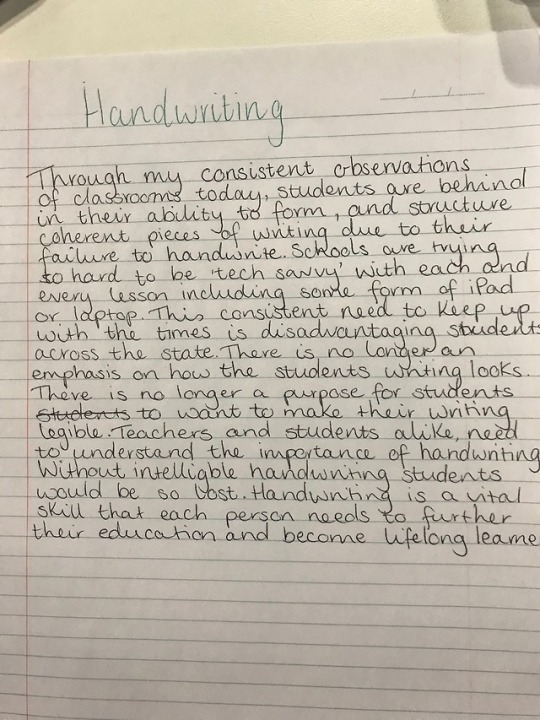 Handwriting
Through my consistent observations
of classrooms today, students are behind
in their ability to form, and structure
coherent pieces of writing due to their
failure to handwrite. Schools are trying
so hard to be 'tech savvy' with each and
every lesson including some form of iPad
or laptop. This consistent need to keep up
with the times is disadvantaging students
across the state. There is no longer an
emphasis on how the students writing looks.
There is no longer a purpose for students
students to want to make their writing
legible. Teachers and students alike, need
to understand the importance of handwriting
Without intelligble handwriting students
would be so lost. Handwriting is a vital
skill that each person needs to further
their education and become lifelong learne